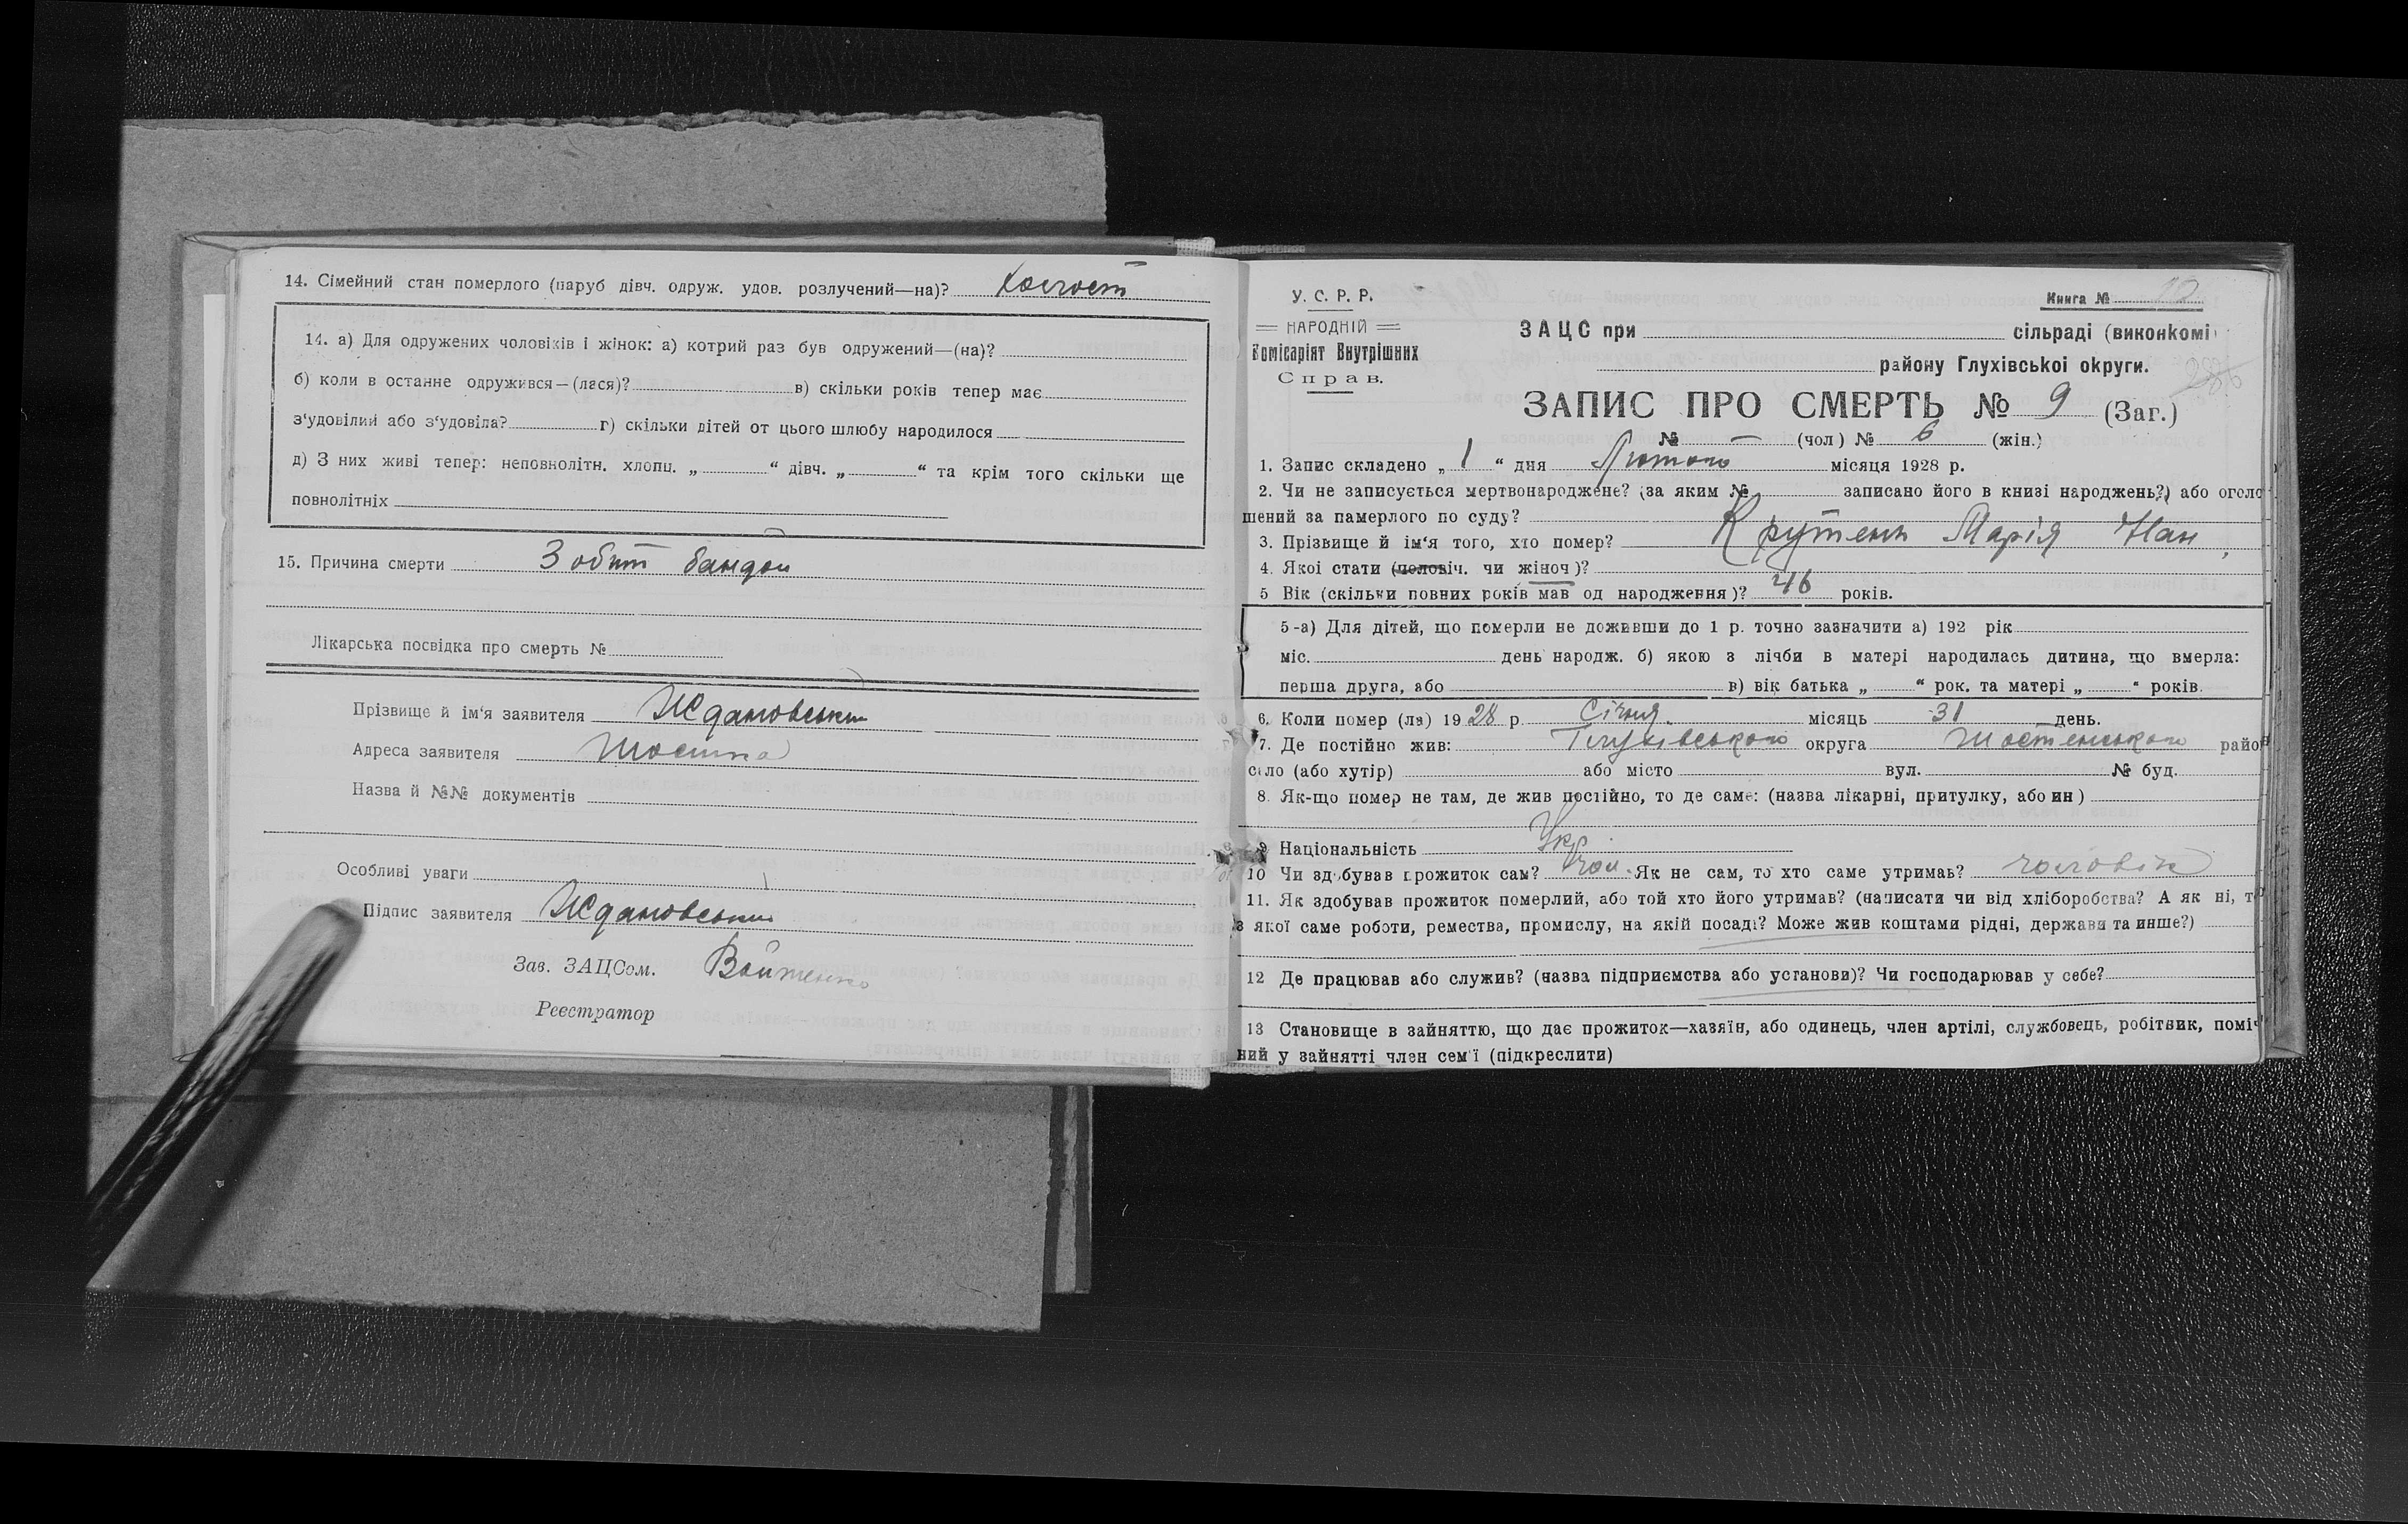 14. Сімейний стан померлого (паруб дівч. одруж. удов. розлучений—на)? холост
14. а) Для одружених чоловіків і жінок: а) котрий раз був одружений—(на)?
б) коли в останне одружився—(лася)? в) скільки років тепер має
з‘удовілий або з‘удовіла? г) скільки дітей от цього шлюбу народилося
д) З них живі тепер: неповнолітн. хлопц. „ “ дівч. „ “ та крім того скільки ще
повнолітніх
15. Причина смерти З обит бандои
Лікарська посвідка про смерть №
Прізвище й ім‘я заявителя Ждановський
Адреса заявителя Шостка
Назва й №№ документів
Особливі уваги
Підпис заявителя Ждановський
Зав. ЗАЦСом. Войтенко
Реєстратор
У. С. Р. Р.
НАРОДНІЙ
Комісаріят Внутрішних
Справ.
Книга № 12
ЗАЦС при сільраді (виконкомі
району Глухівської округи.
286
ЗАПИС ПРО СМЕРТЬ № 9 (Заг.)
№ — (чол) № 6 (жін.)
1. Запис складено „ 1 “ дня Лютого місяця 1928 р.
2. Чи не записується мертвонароджене? (за яким № записано його в книзі народжень?) або оголо
шений за памерлого по суду?
3. Прізвище й ім‘я того, хто помер? Крутень Марія Иан
4. Якоі стати (человіч. чи жіноч)?
5 Вік (скільки повних років мав од народження)? 46 років.
5-а) Для дітей, що померли не доживши до 1 р. точно зазначити а) 192 рік
міс. день народж. б) якою з лічби в матері народилась дитина, що вмерла:
перша друга, або в) вік батька „ “ рок. та матері „ “ років.
6. Коли помер (ла) 1928 р. Січня. місяць 31 день.
7. Де постійно жив: Глухівського округа Шостенського райо
село (або хутір) або місто вул. № буд.
8. Як-що помер не там, де жив постійно, то де саме: (назва лікарні, притулку, або ин)
9 Національність Укр
10 Чи здобував прожиток сам? Як не сам, то хто саме утримав? чоловік
11. Як здобував прожиток померлий, або той хто його утримав? (написати чи від хліборобства? А як ні, то
з якої саме роботи, ремества, промислу, на якій посаді? Може жив коштами рідні, держави та инше?)
12 Де працював або служив? (назва підприємства або установи)? Чи господарював у себе?
13 Становище в зайняттю, що дає прожиток—хазяїн, або одинець, член артілі, службовець, робітвик, поміч
ний у зайнятті член сем‘ї (підкреслити)